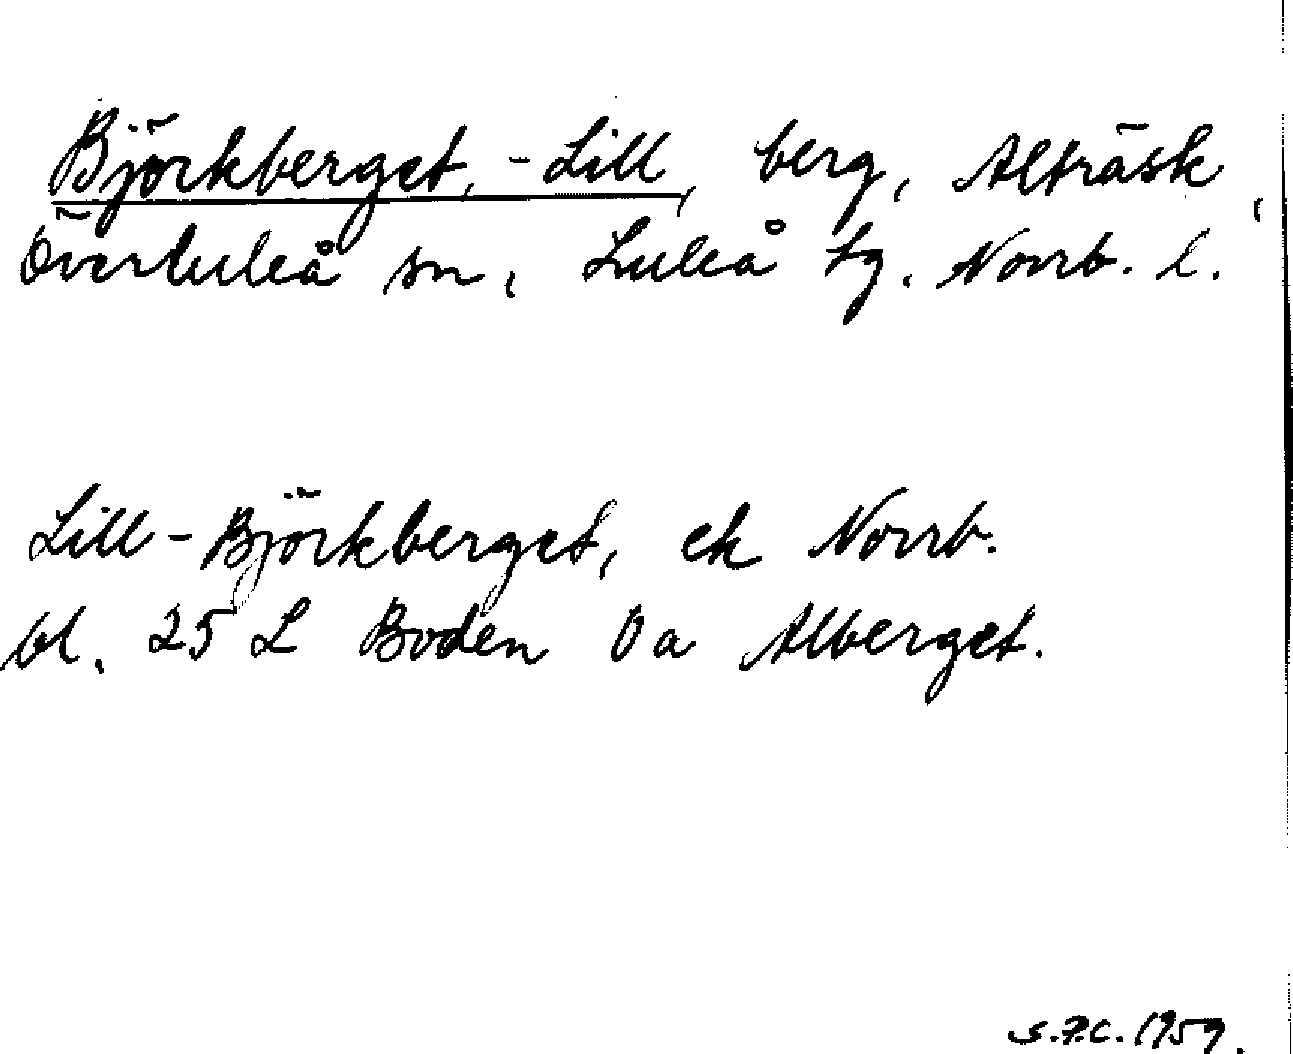 Björkberget, -Lill, berg, Alträsk,
Överluleå sn, Luleå tg. Norrb. l.
Lill-Björkberget, ek Norrb.
bl. 25 L Boden Öa Alberget.
S.F.C. 1959.